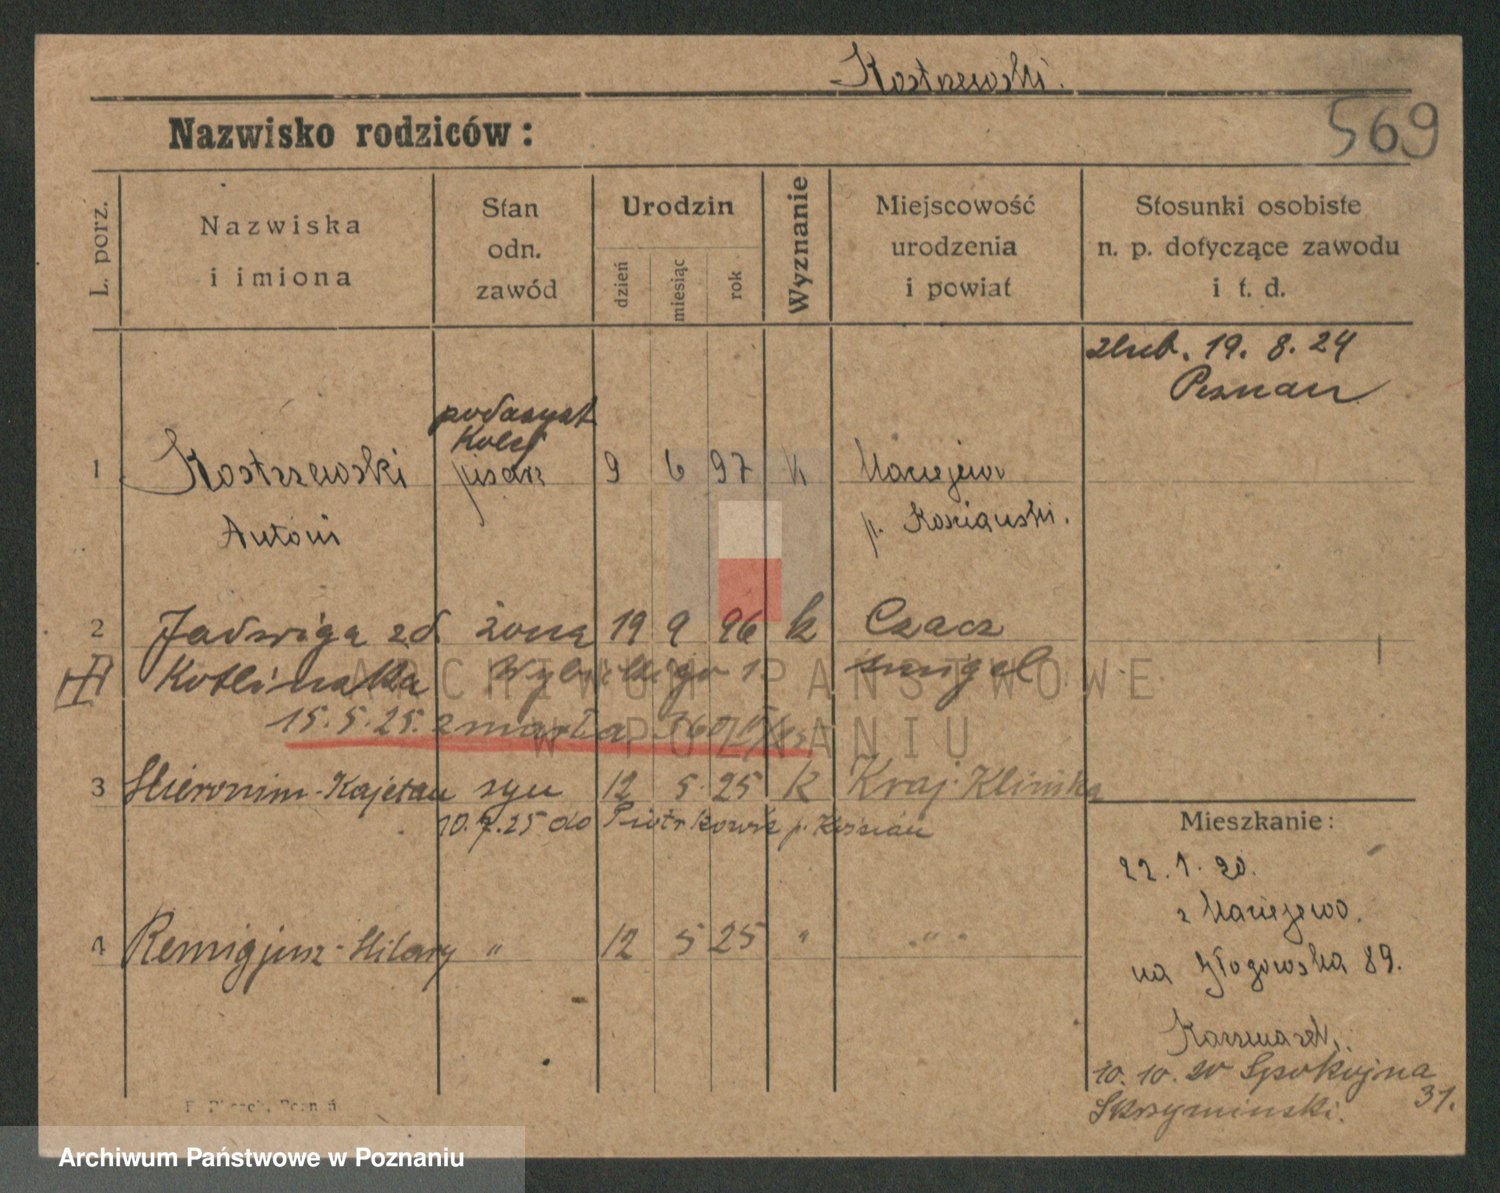 Kostrzewski.
569
Nazwisko rodziców:
L. porz.
Nazwiska
i imiona
Stan
odn.
zawód
Urodzin
dzień
miesiąc
rok
Wyznanie
Miejscowość
urodzenia
i powiat
Stosunki osobiste
n. p. dotyczące zawodu
i t. d.
ślub. 19. 8. 24
Poznań
1 Kostrzewski pisarz 9 6 97 k Maciejewo
Antoni p. Kościański.
2 Jadwiga zd. żona 19 9 96 k Czacz
Kotlińska 1. Śmigel
15.5.25. zmarła
3 Hieronim-Kajetan syn 12 5 25 k Kraj. Klinika
10.7.25 do p. Kościan
4 Remigjusz-Hilary " 12 5 25 " "
Mieszkanie:
22. 1. 20.
z Maciejewo.
na Głogowska 89.
Kaczmarek.
10. 10. 20 Spokojna
31.
Skrzyminski.
ARCHIWUM PAŃSTWOWE
W POZNANIU
Archiwum Państwowe w Poznaniu